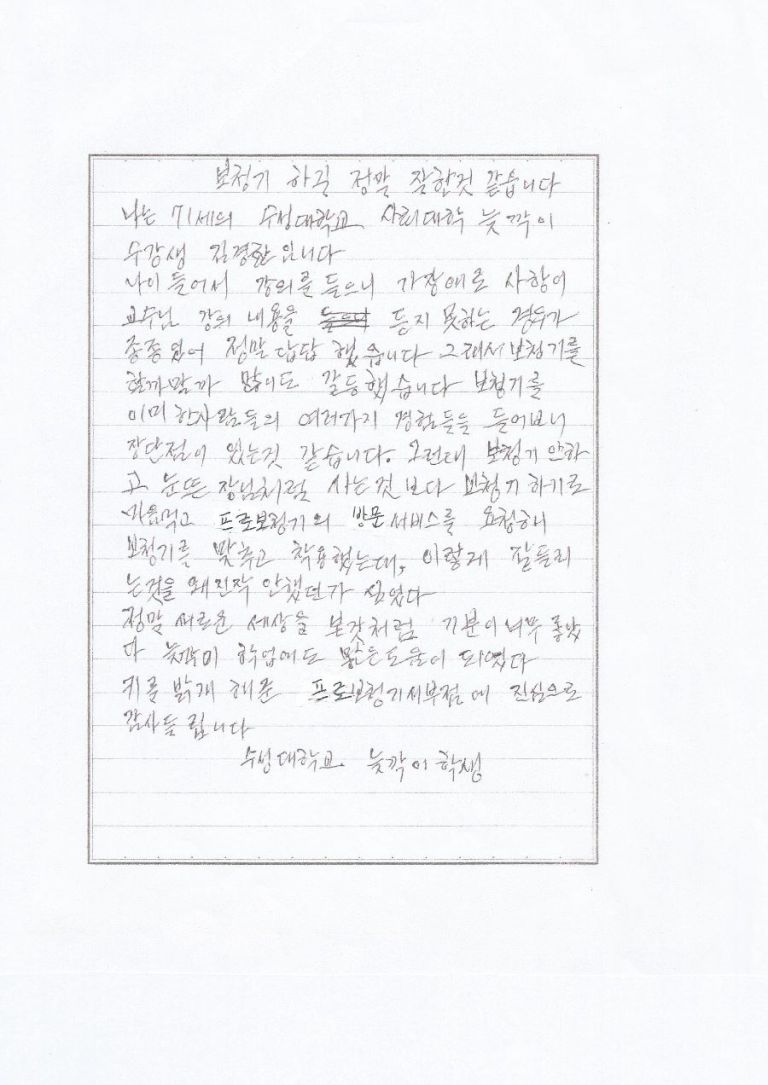 보청기 하길 정말 잘한것 같습니다
나는 71세의 수성대학교 사회대학 늦깍이
수강생 김경환 입니다
나이들어서 강의를 들으니 가장애로 사항이
교수님 강의 내용을 듣지 못하는 경우가
종종있어 정말 답답 했습니다 그래서 보청기를
할까말까 많이도 갈등했습니다 보청기를
이미한사람들의 여러가지 경험들을 들어보니
장단점이 있는것 같습니다. 그런데 보청기 안하
고 눈뜬 장님처럼 사는것 보다 보청기 하기로
마음먹고 프로보청기의 방문서비스를 요청하니
보청기를 맞추고 착용했는데, 이렇게 잘들리
는것을 왜진작 안했던가 싶었다
정말 새로운 세상을 본갓처럼 기분이 너무 좋았
다 늦깍이 학업에도 많은도움이 되였다
귀를 밝게 해준 프로보청기세부점에 진심으로
감사드립니다
수성대학교 늦깍이학생